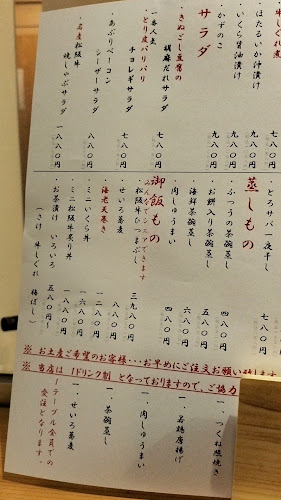 牛しぐれ煮
ほたるいか沖漬け
いくら醤油漬け
かずのこ
七八〇円
九八〇円
九八〇円
サラダ
きぬごし豆腐の
胡麻だれサラダ
七八〇円
一番人気
とり皮パリパリ
チョレギサラダ
七八〇円
あぶりベーコン
シーザーサラダ
八八〇円
名産松阪牛
焼しゃぶサラダ
一八八〇円
とろサバ一夜干し
七八〇円
蒸しもの
ふつうの茶碗蒸し
四八〇円
お餅入り茶碗蒸し
五八〇円
海鮮茶碗蒸し
六八〇円
肉しゅうまい
四八〇円
御飯もの
みんなでシェアできます
松阪牛ひつまぶし
三九八〇円
せいろ蕎麦
八八〇円
海老天巻き
一二八〇円
ミニいくら丼
一六八〇円
ミニ松阪牛炙り丼
一八八〇円
お茶漬け いろいろ
五八〇円~
(さけ 牛しぐれ 梅ぼし)
※ お土産ご希望のお客様・・・お早めにご注文お願い致します
※ 当店は 1ドリンク制 となっておりますので、ご協力
一、つくね照焼き
一、若鶏唐揚げ
一、肉しゅうまい
一、茶碗蒸し
一、せいろ蕎麦
1テーブル会員での
受注となります。